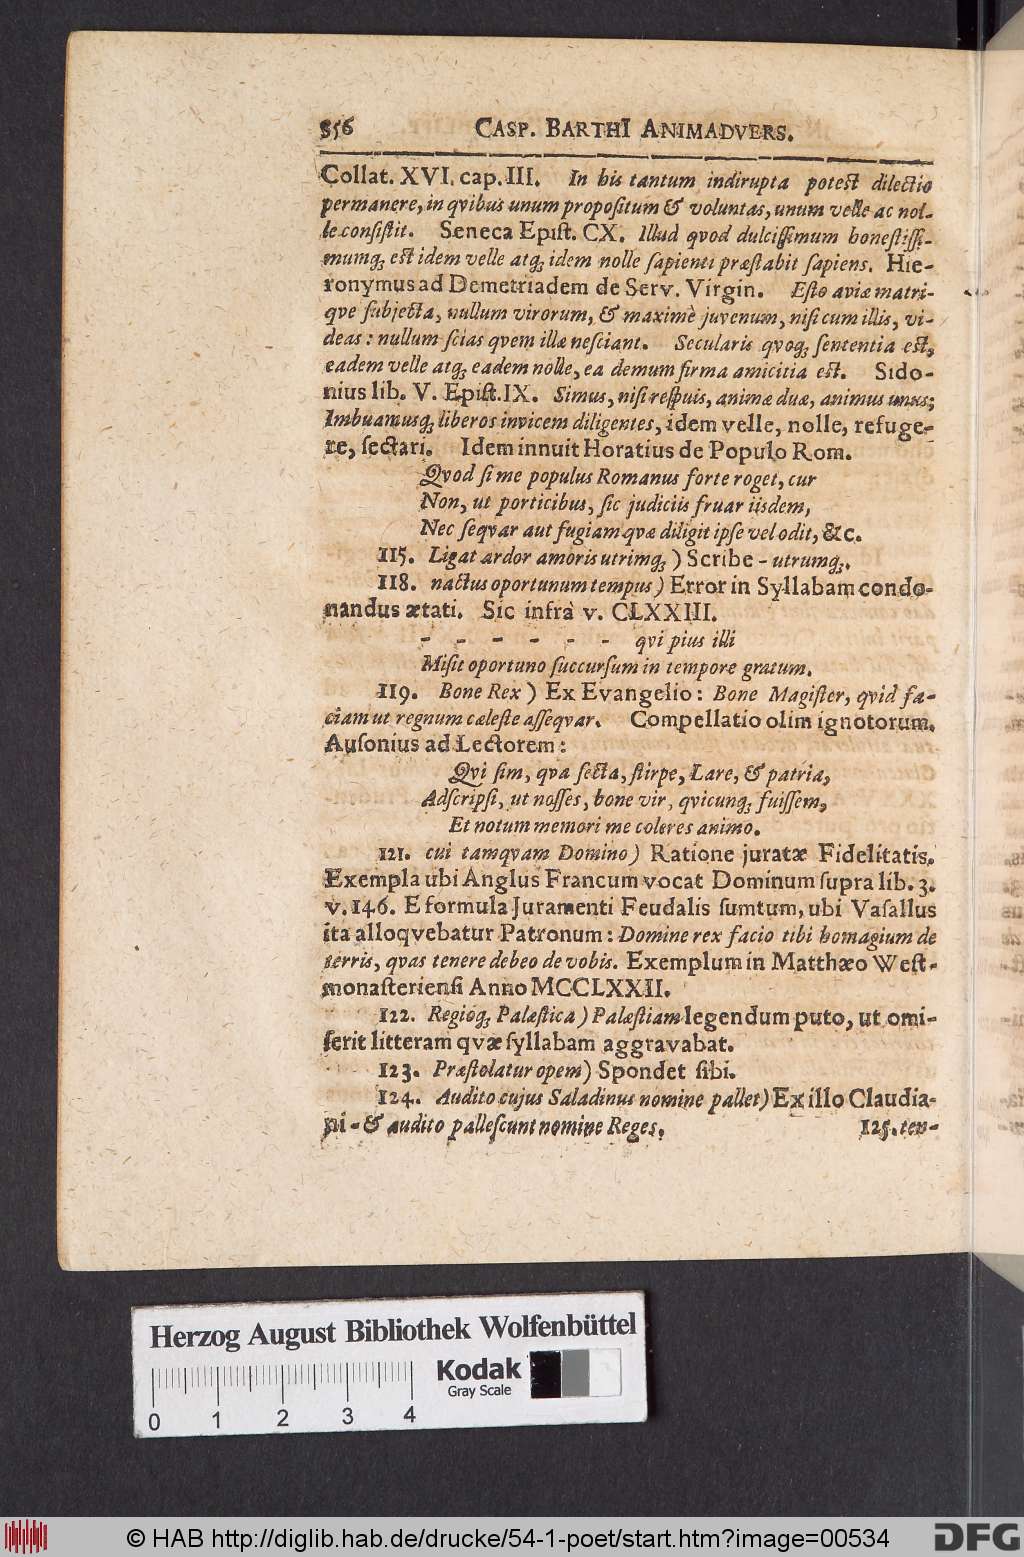 356 CASP. BARTHI ANIMADVERS.
Collat. XVI. cap. III. In his tantum indirupta potest dilectio
permanere, in qvibus unum propoſitum & voluntas, unum velle ac nol-
le conſiſtit. Seneca Epiſt. CX. Illud qvod dulciſſimum honeſtiſſi-
mumq; eſt idem velle atq; idem nolle ſapienti præſtabit ſapiens. Hie-
ronymus ad Demetriadem de Serv. Virgin. Eſto aviæ matri-
qve ſubjecta, nullum virorum, & maximè juvenum, niſi cum illis, vi-
deas: nullum ſcias qvem illæ neſciant. Secularis qvoq; ſententia eſt,
eadem velle atq; eadem nolle, ea demum firma amicitia eſt. Sido-
nius lib. V. Epiſt. IX. Simus, niſi reſpuis, animæ duæ, animus unus;
Imbuamusq; liberos invicem diligentes, idem velle, nolle, refuge-
re, ſectari. Idem innuit Horatius de Populo Rom.
Qvod ſi me populus Romanus forte roget, cur
Non, ut porticibus, ſic judiciis fruar iisdem,
Nec ſeqvar aut fugiam qvæ diligit ipſe vel odit, &c.
115. Ligat ardor amoris utrimq; ) Scribe - utrumq;.
118. nactus oportunum tempus) Error in Syllabam condo-
nandus ætati. Sic infrà v. CLXXIII.
- - - - - - qvi pius illi
Miſit oportuno ſuccurſum in tempore gratum.
119. Bone Rex ) Ex Evangelio: Bone Magiſter, qvid fa-
ciam ut regnum cæleſte aſſeqvar. Compellatio olim ignotorum.
Auſonius ad Lectorem:
Qvi ſim, qva ſecta, ſtirpe, Lare, & patria,
Adſcripſi, ut noſſes, bone vir, qvicunq; fuiſſem,
Et notum memori me coleres animo.
121. cui tamqvam Domino) Ratione juratæ Fidelitatis.
Exempla ubi Anglus Francum vocat Dominum ſupra lib. 3.
v. 146. E formula Juramenti Feudalis ſumtum, ubi Vaſallus
ita alloqvebatur Patronum: Domine rex facio tibi homagium de
terris, qvas tenere debeo de vobis. Exemplum in Matthæo Weſt-
monaſterienſi Anno MCCLXXII.
122. Regioq; Palæſtica) Palæſtiam legendum puto, ut omi-
ſerit litteram qvæ ſyllabam aggravabat.
123. Præſtolatur opem) Spondet ſibi.
124. Audito cujus Saladinus nomine pallet) Ex illo Claudia-
ni - & audito palleſcunt nomine Reges. 125. ten-
Herzog August Bibliothek Wolfenbüttel
Kodak
Gray Scale
0 1 2 3 4
© HAB http://diglib.hab.de/drucke/54-1-poet/start.htm?image=00534
DFG